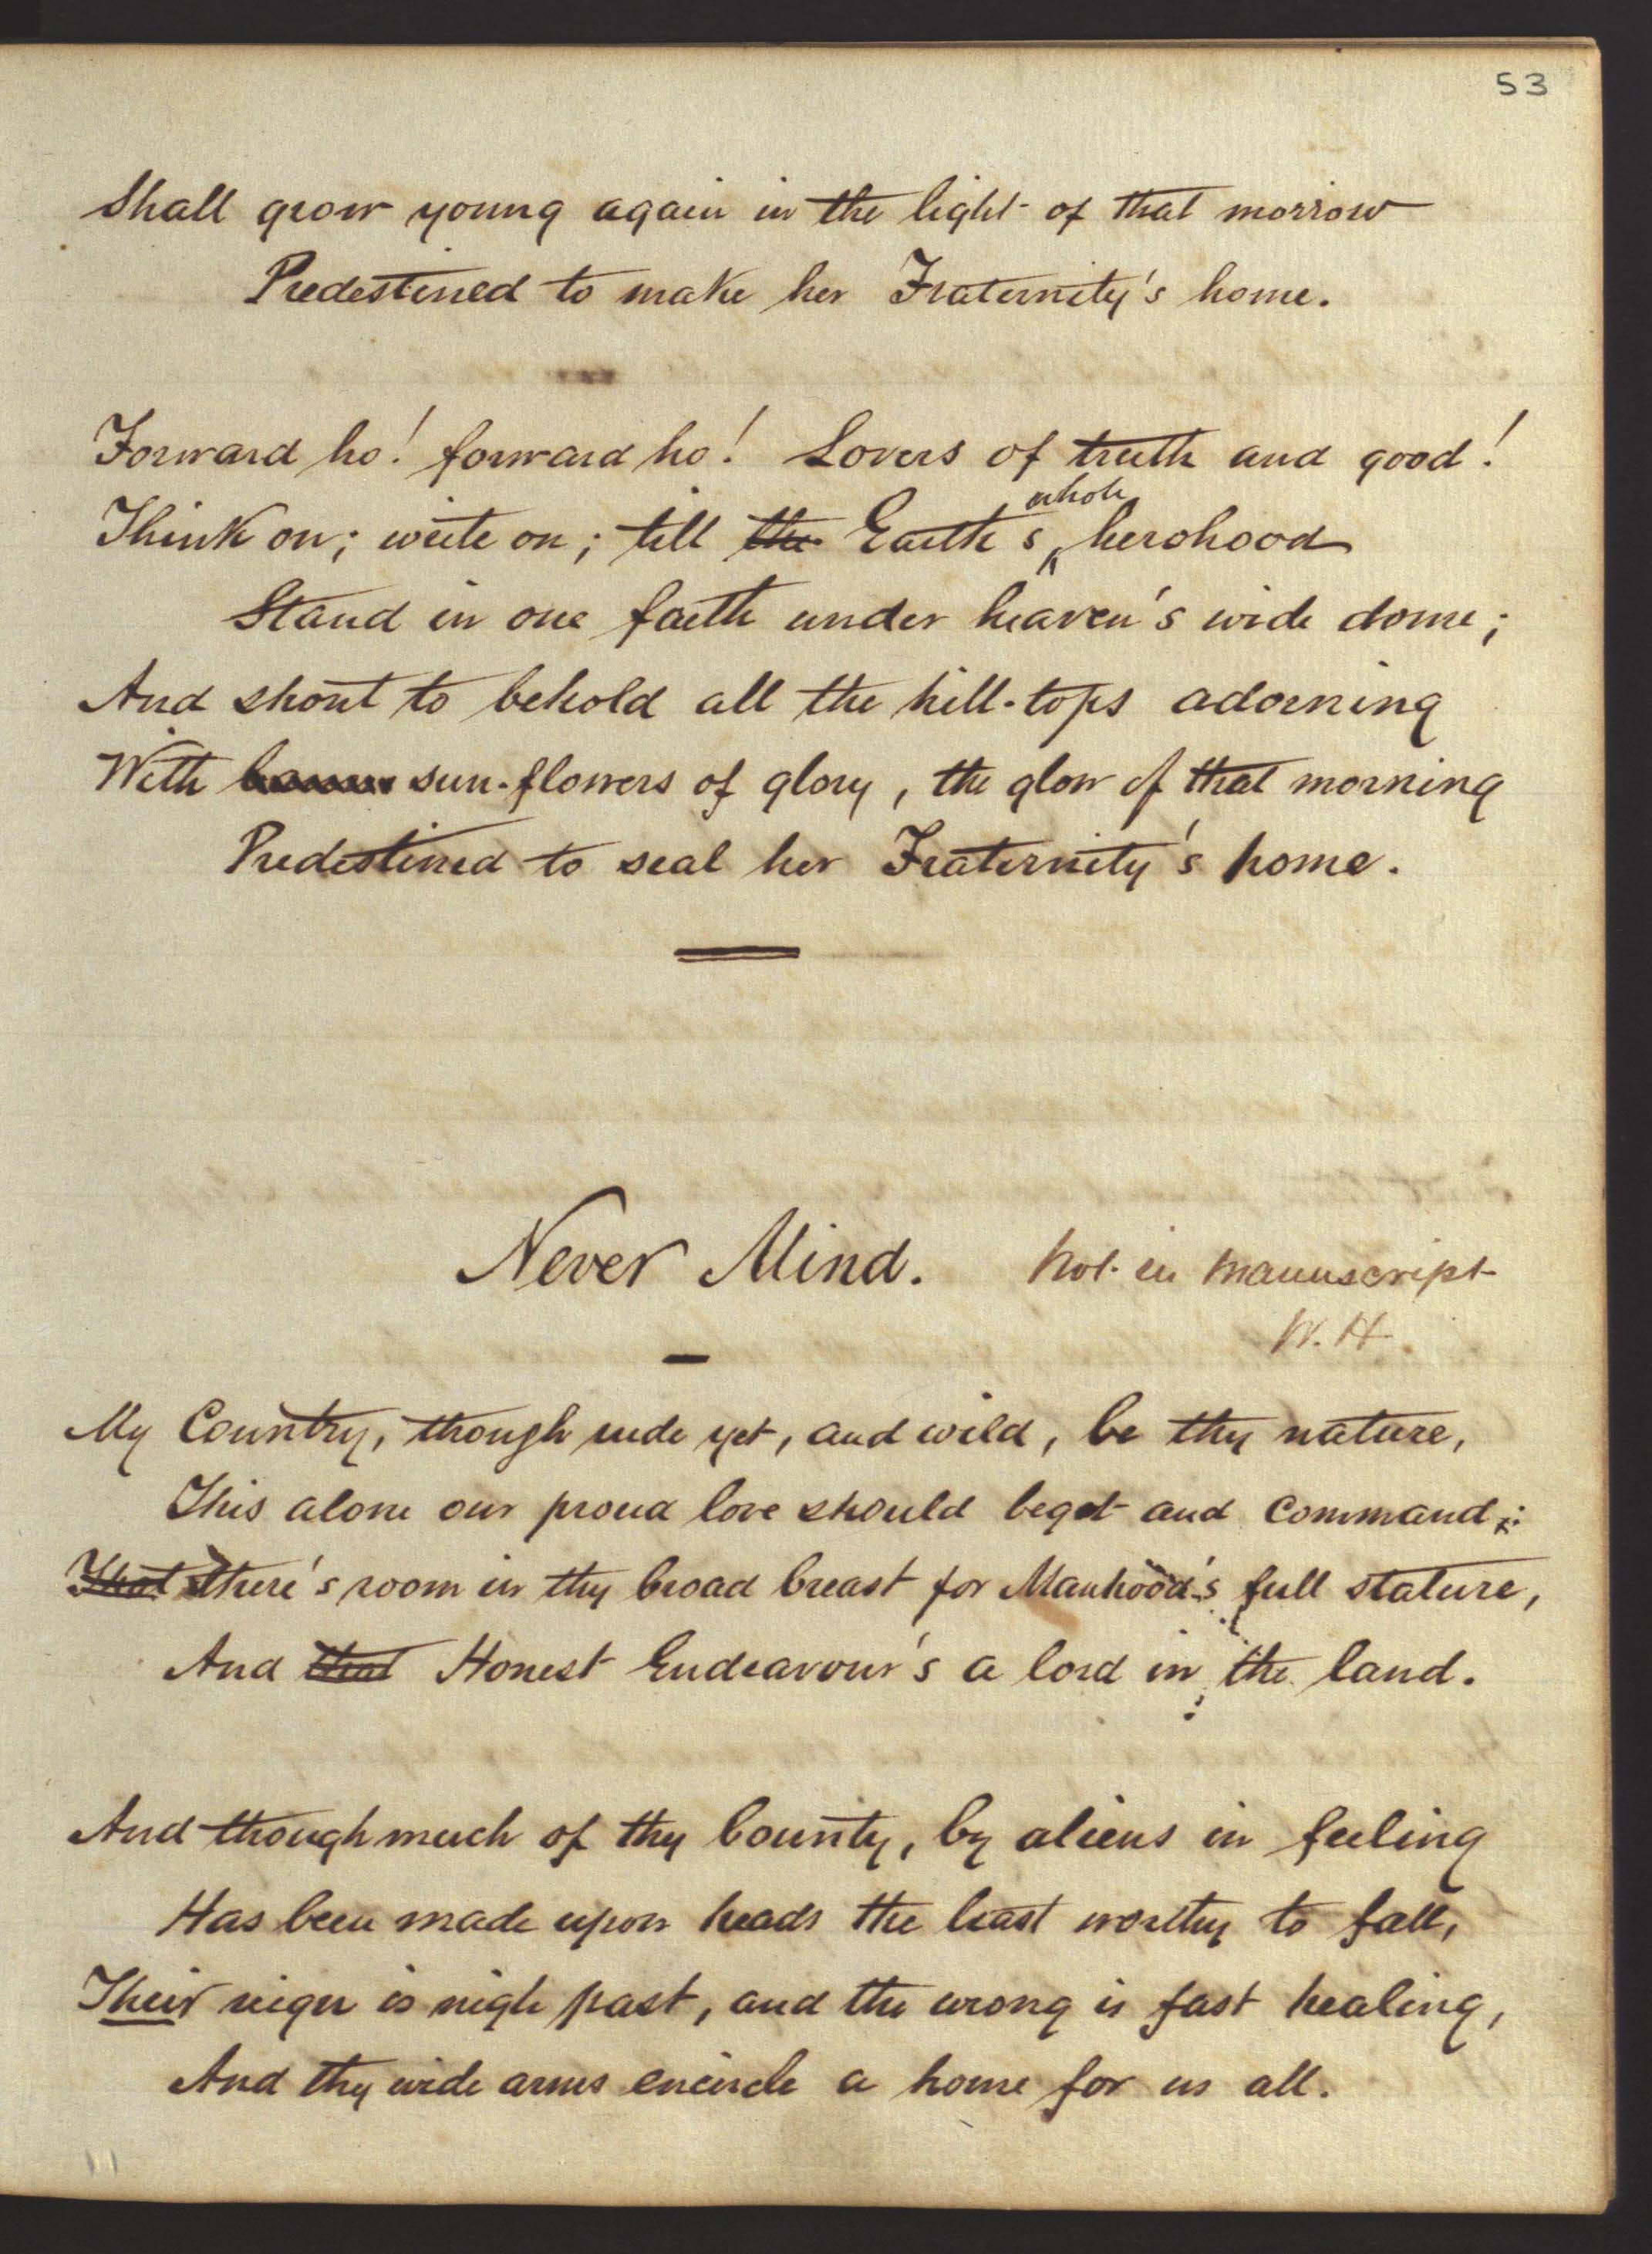 53
Shall grow young again in the light of that morrow
Predestined to make her Fraternity's home.
Forward ho! forward ho! Lovers of truth and good!
whole
Think on; write on; till the Earth's herohood
Stand in one faith under heaven's wide dome;
And shout to behold all the hill-tops adorning
With sun-flowers of glory, the glow of that morning
Predestined to seal her Fraternity's home.
Never Mind. Not in Manuscript
W. H.
My Country, though rude yet, and wild, be thy nature,
This alone our proud love should beget and command;
That there's room in thy broad breast for Manhood's full stature,
And that Honest Endeavour's a lord in the land.
And though much of thy bounty, by aliens in feeling
Has been made upon heads the least worthy to fall,
Their reign is nigh past, and the wrong is fast healing,
And thy wide arms encircle a home for us all.